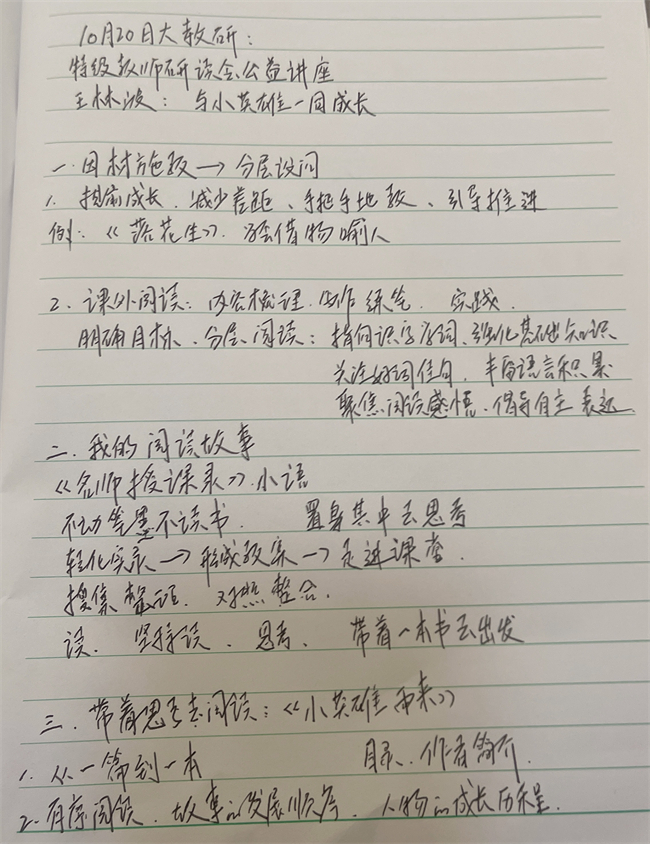 10月20日大教研：
特级教师研读会公益讲座
王林波：与小英雄一同成长
一.因材施教→分层设问
1. 提前成长、减少差距、手把手地教、引导推进
例：《落花生》.学会借物喻人
2. 课外阅读：内容梳理.仿作练笔.实践.
明确目标、分层阅读：指向识字学词、强化基础知识
关注好词佳句、丰富语言积累
聚焦阅读感悟、倡导自主表达
二.我的阅读故事
《名师授课录》小语
不动笔墨不读书. 置身其中去思考
转化实录→形成教案→走进课堂.
搜集整理. 对照整合.
读、坚持读、思考、带着一本书去出发
三.带着思考去阅读：《小英雄雨来》
1. 从一篇到一本 目录、作者简介.
2. 有序阅读、故事的发展顺序、人物的成长历程.